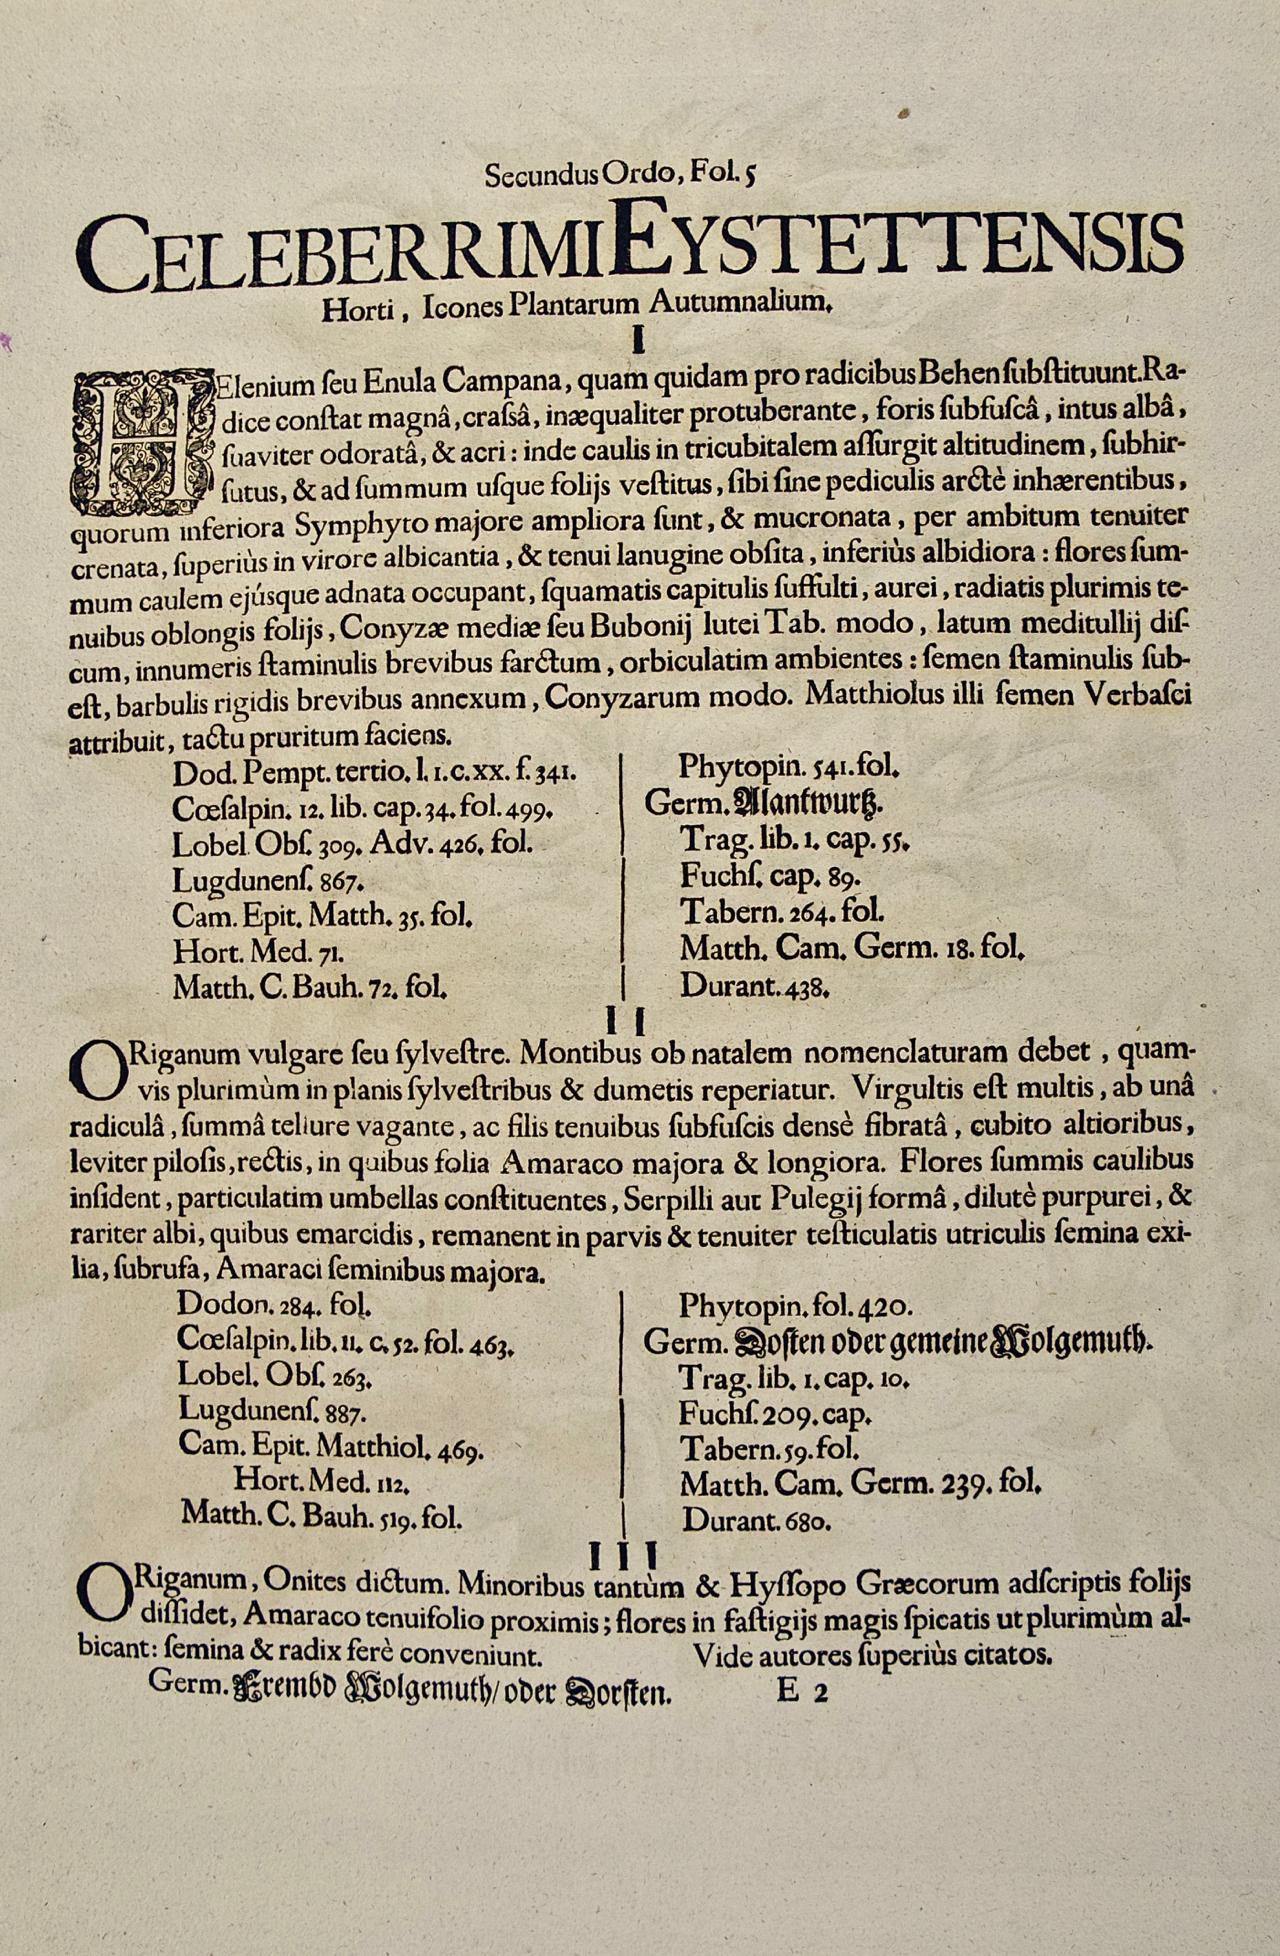 Secundus Ordo, Fol. 5
CELEBERRIMI EYSTETTENSIS
Horti, Icones Plantarum Autumnalium.
I
HElenium ſeu Enula Campana, quam quidam pro radicibus Behen ſubſtituunt. Ra-
dice conſtat magnâ, craſsâ, inæqualiter protuberante, foris ſubfuſcâ, intus albâ,
ſuaviter odoratâ, & acri: inde caulis in tricubitalem aſſurgit altitudinem, ſubhir-
ſutus, & ad ſummum uſque folijs veſtitus, ſibi ſine pediculis arctè inhærentibus,
quorum inferiora Symphyto majore ampliora ſunt, & mucronata, per ambitum tenuiter
crenata, ſuperiùs in virore albicantia, & tenui lanugine obſita, inferiùs albidiora: flores ſum-
mum caulem ejúsque adnata occupant, ſquamatis capitulis ſuffulti, aurei, radiatis plurimis te-
nuibus oblongis folijs, Conyzæ mediæ ſeu Bubonij lutei Tab. modo, latum meditullij diſ-
cum, innumeris ſtaminulis brevibus farctum, orbiculatim ambientes: ſemen ſtaminulis ſub-
eſt, barbulis rigidis brevibus annexum, Conyzarum modo. Matthiolus illi ſemen Verbaſci
attribuit, tactu pruritum faciens.
Dod. Pempt. tertio. l. 1. c. xx. f. 341.
Cœſalpin. 12. lib. cap. 34. fol. 499.
Lobel Obſ. 309. Adv. 426. fol.
Lugdunenſ. 867.
Cam. Epit. Matth. 35. fol.
Hort. Med. 71.
Matth. C. Bauh. 72. fol.
Phytopin. 541. fol.
Germ. Alantwurtz.
Trag. lib. 1. cap. 55.
Fuchſ. cap. 89.
Tabern. 264. fol.
Matth. Cam. Germ. 18. fol.
Durant. 438.
II
ORiganum vulgare ſeu ſylveſtre. Montibus ob natalem nomenclaturam debet, quam-
vis plurimùm in planis ſylveſtribus & dumetis reperiatur. Virgultis eſt multis, ab unâ
radiculâ, ſummâ tellure vagante, ac filis tenuibus ſubfuſcis densè fibratâ, cubito altioribus,
leviter piloſis, rectis, in quibus folia Amaraco majora & longiora. Flores ſummis caulibus
inſident, particulatim umbellas conſtituentes, Serpilli aut Pulegij formâ, dilutè purpurei, &
rariter albi, quibus emarcidis, remanent in parvis & tenuiter teſticulatis utriculis ſemina exi-
lia, ſubrufa, Amaraci ſeminibus majora.
Dodon. 284. fol.
Cœſalpin. lib. 11. c. 52. fol. 463.
Lobel. Obſ. 263.
Lugdunenſ. 887.
Cam. Epit. Matthiol. 469.
Hort. Med. 112.
Matth. C. Bauh. 519. fol.
Phytopin. fol. 420.
Germ. Doſten oder gemeine Wolgemuth.
Trag. lib. 1. cap. 10.
Fuchſ. 209. cap.
Tabern. 59. fol.
Matth. Cam. Germ. 239. fol.
Durant. 680.
III
ORiganum, Onites dictum. Minoribus tantùm & Hyſſopo Græcorum adſcriptis folijs
diſſidet, Amaraco tenuifolio proximis; flores in faſtigijs magis ſpicatis ut plurimùm al-
bicant: ſemina & radix ferè conveniunt. Vide autores ſuperiùs citatos.
Germ. Frembd Wolgemuth/ oder Dorſten. E 2